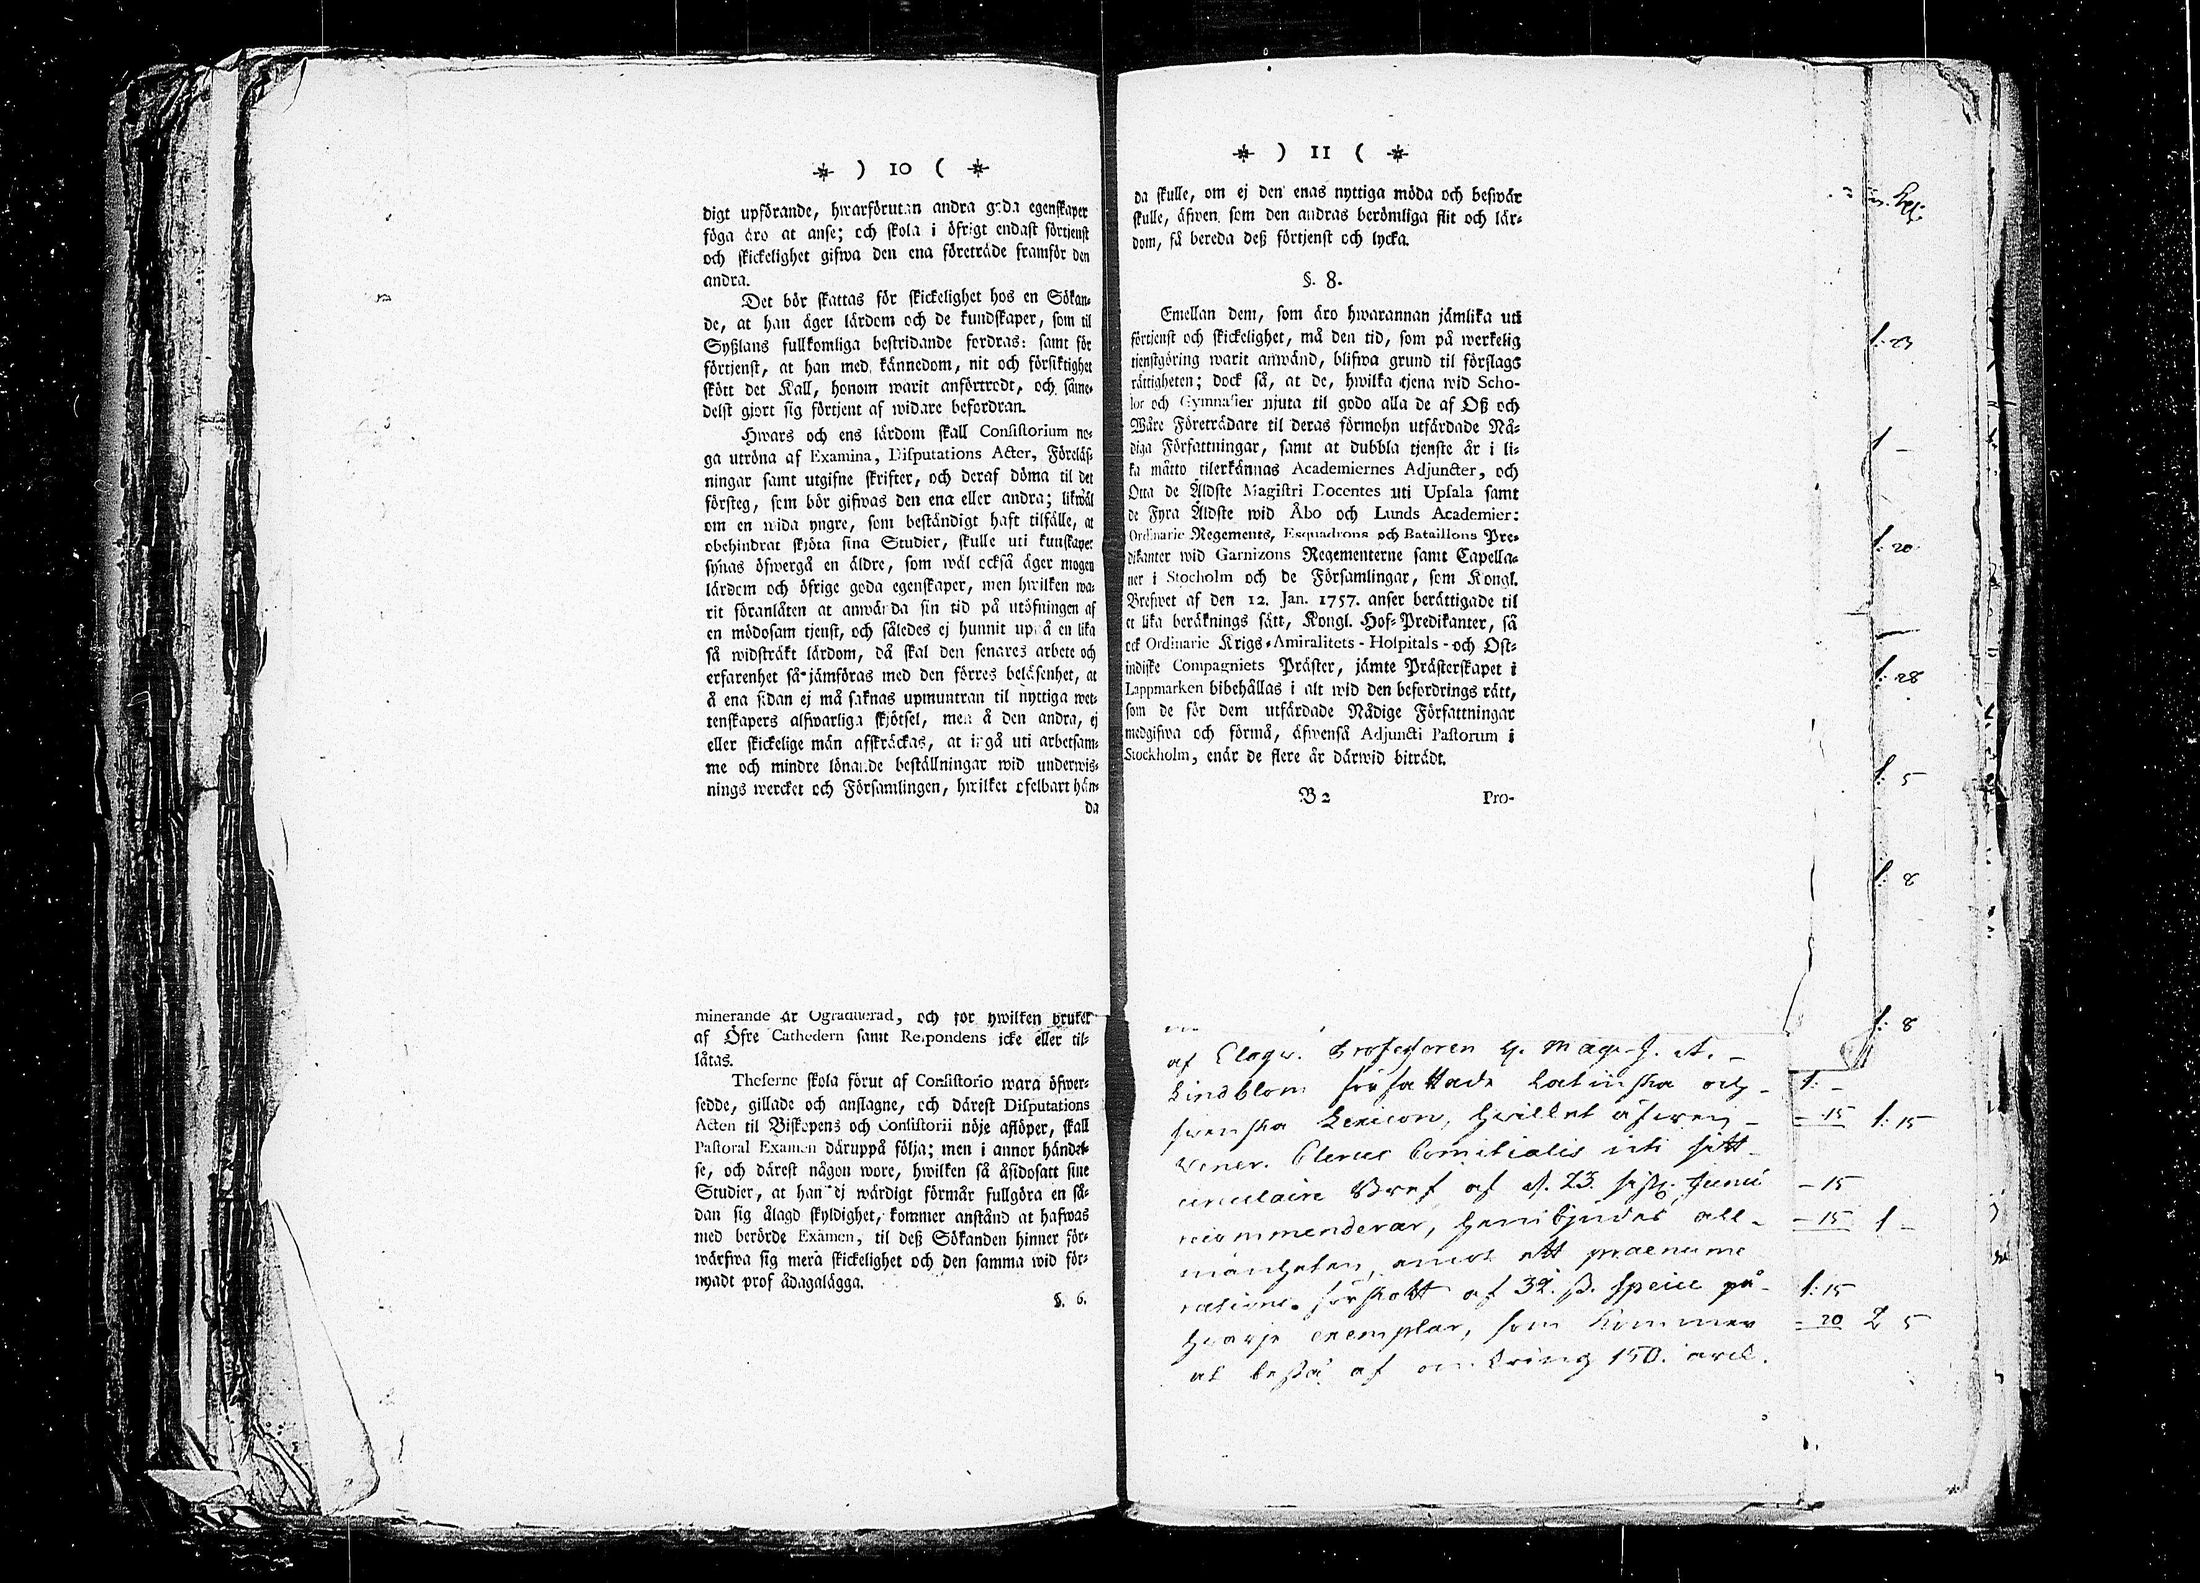 ⁜ ) 10 ( ⁜
digt upförande, hwarförutan andra goda egenskaper
föga äro at anse; och skola i öfrigt endast förtjenst
och skickelighet gifwa den ena företräde framför den
andra.
Det bör skattas för skickelighet hos en Sökan-
de, at han äger lärdom och de kundskaper, som til
Syßlans fullkomliga bestridande fordras: samt för
förtjenst, at han med kännedom, nit och försiktighet
skött det Kall, honom warit anförtrodt, och såme-
delst gjort sig förtjent af widare befordran.
Hwars och ens lärdom skall Consistorium no-
ga utröna af Examina, Disputations Acter, Föreläs-
ningar samt utgifne skrifter, och deraf döma til det
försteg, som bör gifwas den ena eller andra; likwäl
om en wida yngre, som beständigt haft tilfälle, at
obehindrat skjöta sina Studier, skulle uti kunskaper
synas öfwergå en äldre, som wäl också äger mogen
lärdom och öfrige goda egenskaper, men hwilken wa-
rit föranlåten at anwända sin tid på utöfningen af
en mödosam tjenst, och således ej hunnit upnå en lika
så widsträkt lärdom, då skal den senares arbete och
erfarenhet så jämföras med den förres beläsenhet, at
å ena sidan ej må saknas upmuntran til nyttiga wet-
tenskapers alfwarliga skjötsel, men å den andra, ej
eller skickelige män afskräckas, at ingå uti arbetsam-
me och mindre lönande beställningar wid underwis-
nings wercket och Församlingen, hwilket ofelbart hän-
da
minerande är Ograduerad, och för hwilken bruket
af Öfre Cathedern samt Respondens icke eller til-
låtas.
Theserne skola förut af Consistorio wara öfwer-
sedde, gillade och anslagne, och därest Disputations
Acten til Biskopens och Consistorii nöje aflöper, skall
Pastoral Examen däruppå följa; men i annor händel-
se, och därest någon wore, hwilken så åsidosatt sine
Studier, at han ej wärdigt förmår fullgöra en så-
dan sig ålagd skyldighet, kommer anstånd at hafwas
med berörde Examen, til deß Sökanden hinner för-
wärfwa sig mera skickelighet och den samma wid för-
nyadt prof ådagalägga.
§. 6.
⁜ ) 11 ( ⁜
da skulle, om ej den enas nyttiga möda och beswär
skulle, äfwen som den andras berömliga flit och lär-
dom, få bereda deß förtjenst och lycka.
§. 8.
Emellan dem, som äro hwarannan jämlika uti
förtjenst och skickelighet, må den tid, som på werkelig
tjenstgöring warit anwänd, blifwa grund til förslags
rättigheten; dock så, at de, hwilka tjena wid Scho-
lor och Gymnasier njuta til godo alla de af Oß och
Wåre Företrädare til deras förmohn utfärdade Nå-
diga Författningar, samt at dubbla tjenste år i li-
ka måtto tilerkännas Academiernes Adjuncter, och
Otta de Äldste Magistri Docentes uti Upsala samt
de Fyra Äldste wid Åbo och Lunds Academier:
Ordinarie Regements, Esquadrons och Bataillons Pre-
dikanter wid Garnizons Regementerne samt Capella-
ner i Stocholm och de Församlingar, som Kongl.
Brefwet af den 12. Jan. 1757. anser berättigade til
et lika beräknings sätt, Kongl. Hof-Predikanter, så
ock Ordinarie Krigs-Amiralitets-Hospitals-och Ost-
indiske Compagniets Präster, jämte Prästerskapet i
Lappmarken bibehållas i alt wid den befordrings rätt,
som de för dem utfärdade Nådige Författningar
medgifwa och förmå, äfwenså Adjuncti Pastorum i
Stockholm, enär de flere år därwid biträdt.
B 2 Pro-
af Professoren H. Mag. J. A.
Lindblom författade Latinska och
Svenska Lexicon, hwilket äfwen
Vener. Clerus Comitialis uti sitt
circulaire Bref af d. 23. sistl. Junii
recommenderar, hembjudes all-
mänheten, emot ett praenume
rations förskott af 32. ß. specie på
hvarje exemplar, som kommer
at bestå af omkring 150. arck.
1: 23
1 -
1: 20
1: 28
1: 5
1: 8
1: 8
1: -
- 15 1: 15
- 15
- 15 1 -
1: 15
- 20 2 5